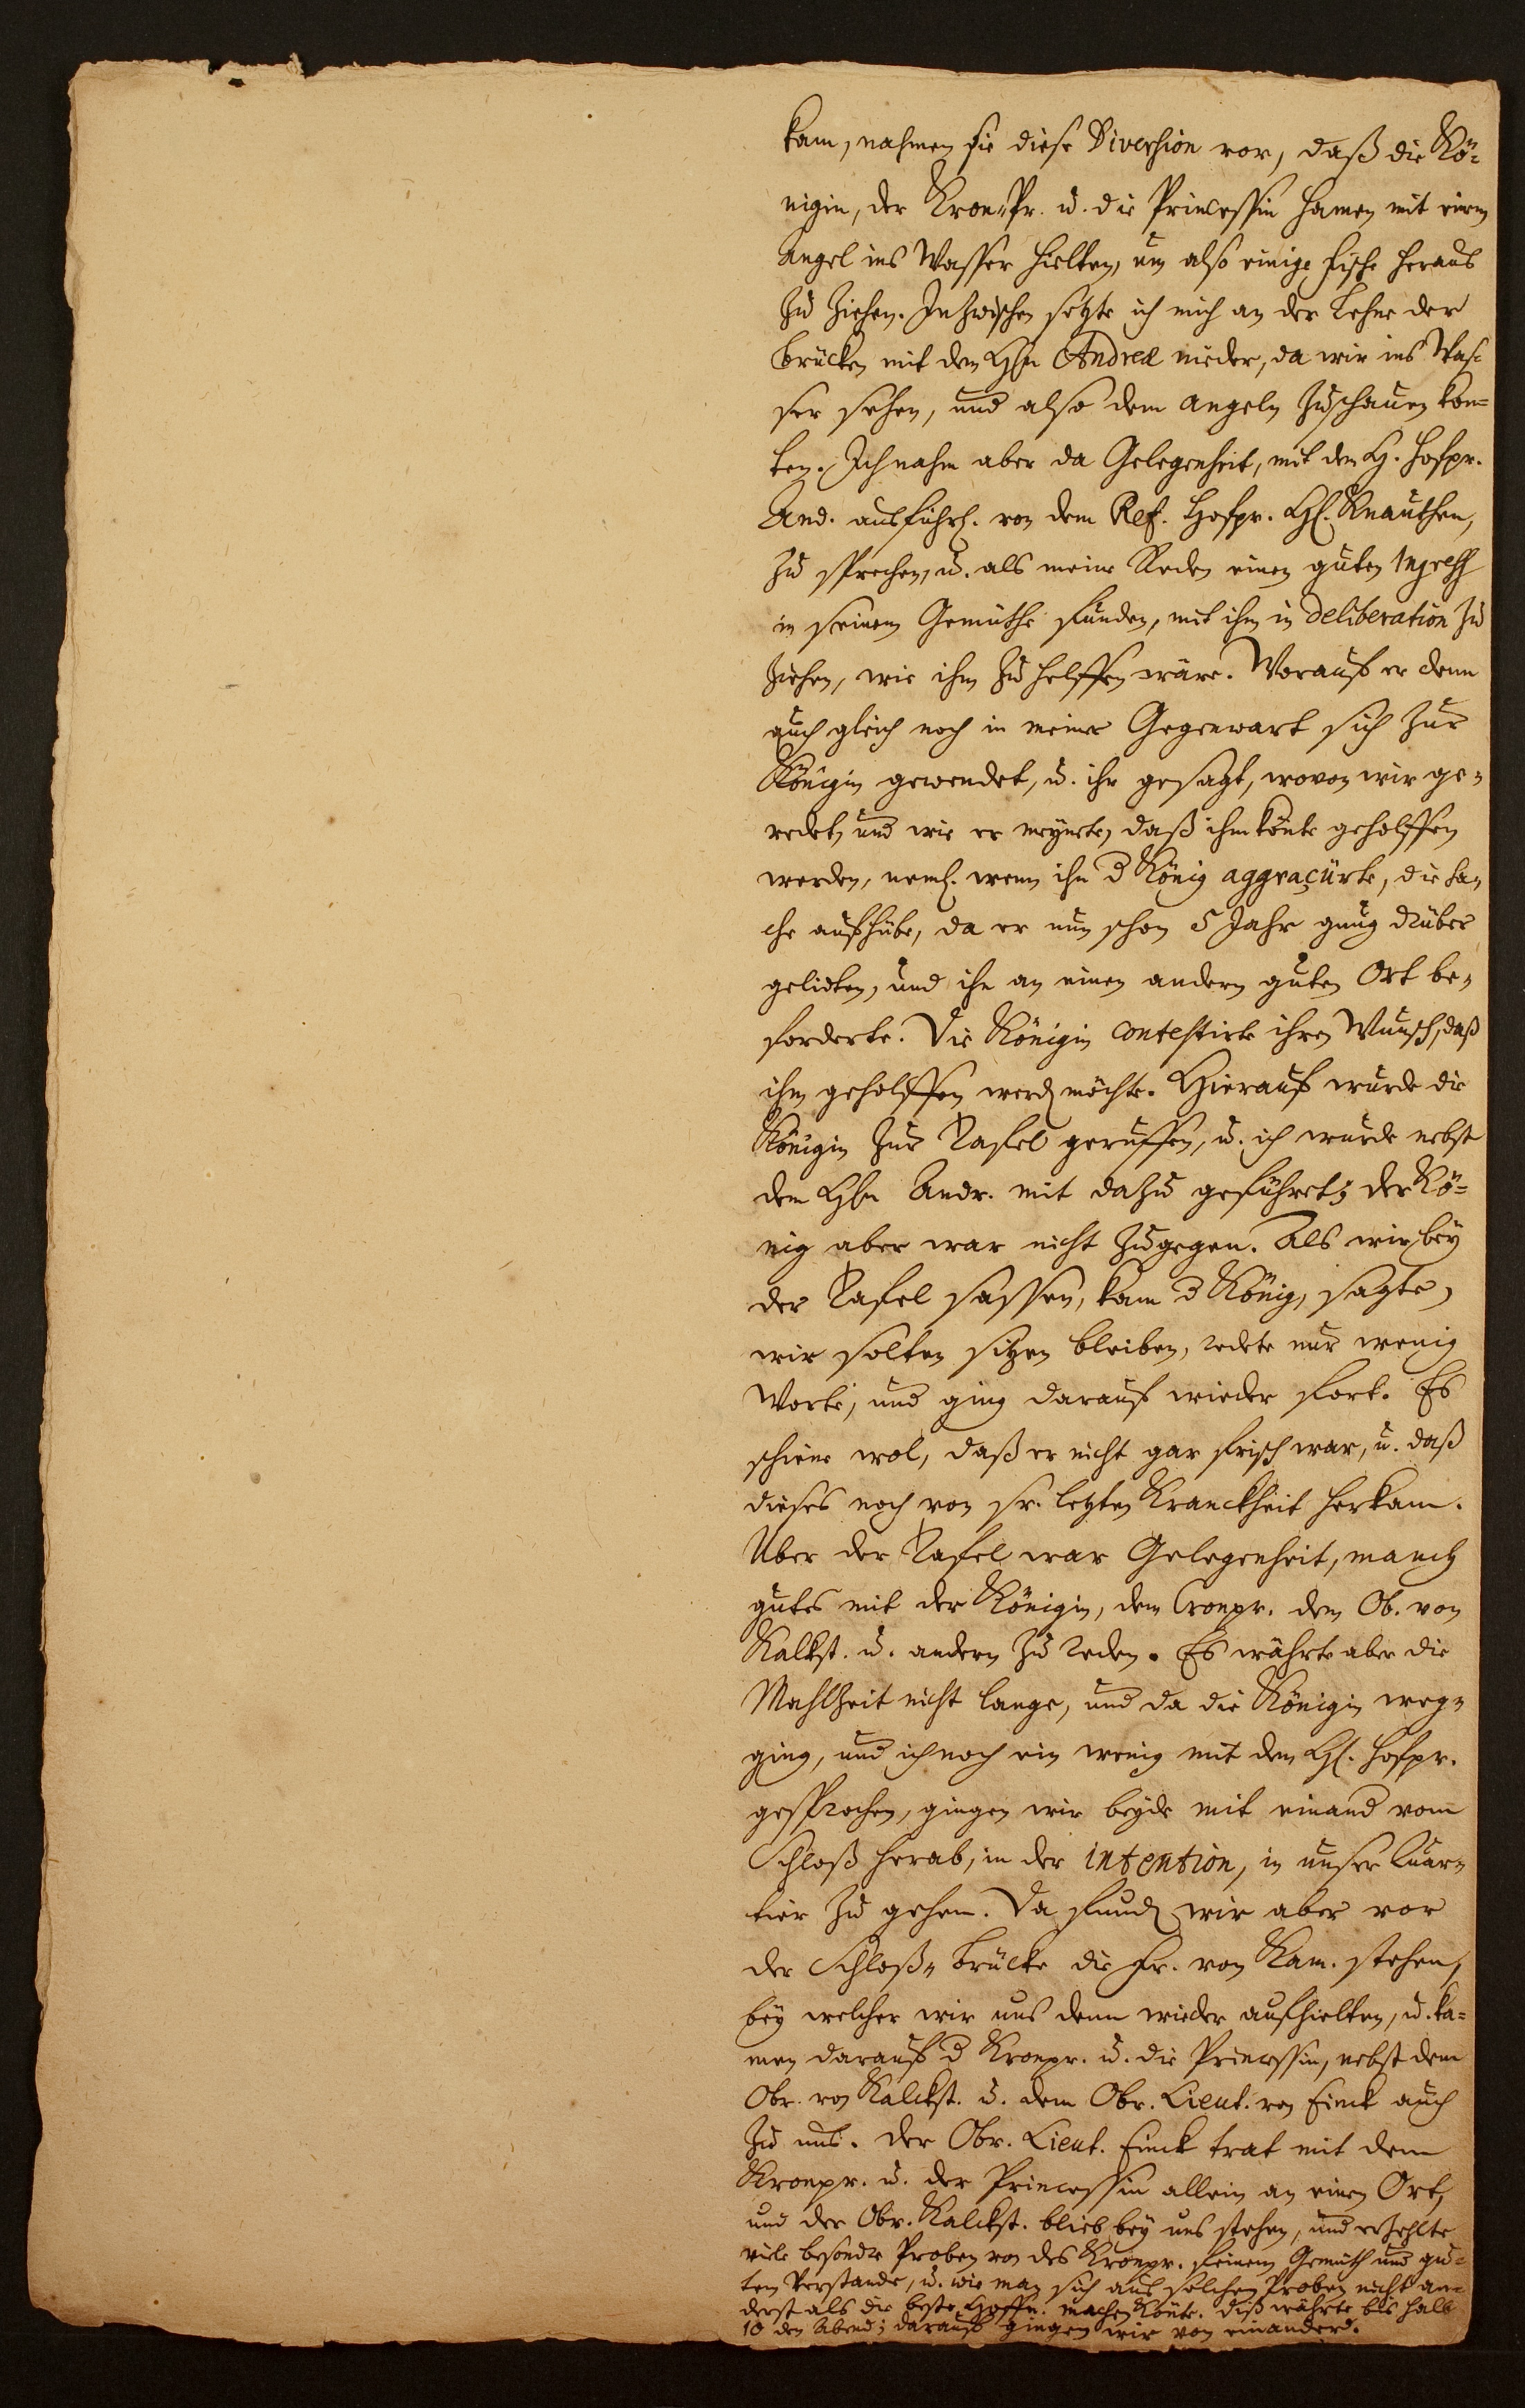 kam, nahmen sie diese Diversion vor, daß die Kö-
nigin, der Kron-Pr. u. die Princessin Hamen mit einem
Angel ins Wasser hielten, um also einige Fische heraus
zu ziehen. Inzwischen setzte ich mich an der Lehne der
Brücken mit dem Hn Andreae nieder, da wir ins Was-
ser sehen, und also dem angeln zuschauen kon-
ten. Ich nahm aber da Gelegenheit, mit dem H. Hofpr.
And. ausführl. von dem Ref. Hofpr. H. Knauthen,
zu sprechen, u. als meine Reden einen guten Ingress
in seinem Gemüthe funden, mit ihm in deliberation zu
ziehen, wie ihm zu helffen wäre. Worauf er denn
auch gleich noch in meiner Gegenwart sich zur
Königin gewendet, u. ihr gesagt, wovon wir ge-
redet, und wie er meynete, daß ihm könte geholffen
werden, neml. wenn ihn d König aggraciirte, die Sa-
che aufhübe, da er nun schon 5 Jahr gnug drüber
gelidten, und ihn an einen andern guten Ort be-
forderte. Die Königin contestirte ihren Wunsch, daß
ihm geholffen werd möchte. Hierauf wurde die
Königin zur Tafel geruffen, u. ich wurde nebst
dem Hn Andr. mit dahzu geführet; der Kö-
nig aber war nicht zugegen. Als wir bey
der Tafel sassen, kam d König, sagte,
wir solten sitzen bleiben, redete nur wenig
Worte, und ging darauf wieder fort. Es
schiene wol, daß er nicht gar frisch war, u. daß
dieses noch von sr. letzten Kranckheit herkam.
Uber der Tafel war Gelegenheit, manch
gutes mit der Königin, dem Cronpr. dem Ob. von
Kalkst. u. andern zu reden. Es währte aber die
Mahlzeit nicht lange, und da die Königin weg-
ging, und ich noch ein wenig mit dem H. Hofpr.
gesprochen, gingen wir beyde mit einand vom
Schloß herab, in der intention, in unser Quar-
tier zu gehen. Da fund wir aber vor
der Schloß-Brücke die Fr. von Kam. stehen,
bey welcher wir uns denn wieder aufhielten, u. ka-
men darauf d Kronpr. u. die Princessin, nebst dem
Obr. von Kalckst. u. dem Obr. Lieut. von Finck auch
zu uns. Der Obr. Lieut. Finck trat mit dem
Kronpr. u. der Princessin allein an einen Ort,
und der Obr. Kalckst. blieb bey uns stehen, und erzehlte
viele besondre Proben von des Kronpr. feinem Gemüth und gu-
ten Verstande, u. wie man sich aus solchen Proben nicht an-
derst als die beste Hoffn. machen könte. Diß währte bis halb
10 den Abend; darauf gingen wir von einander.